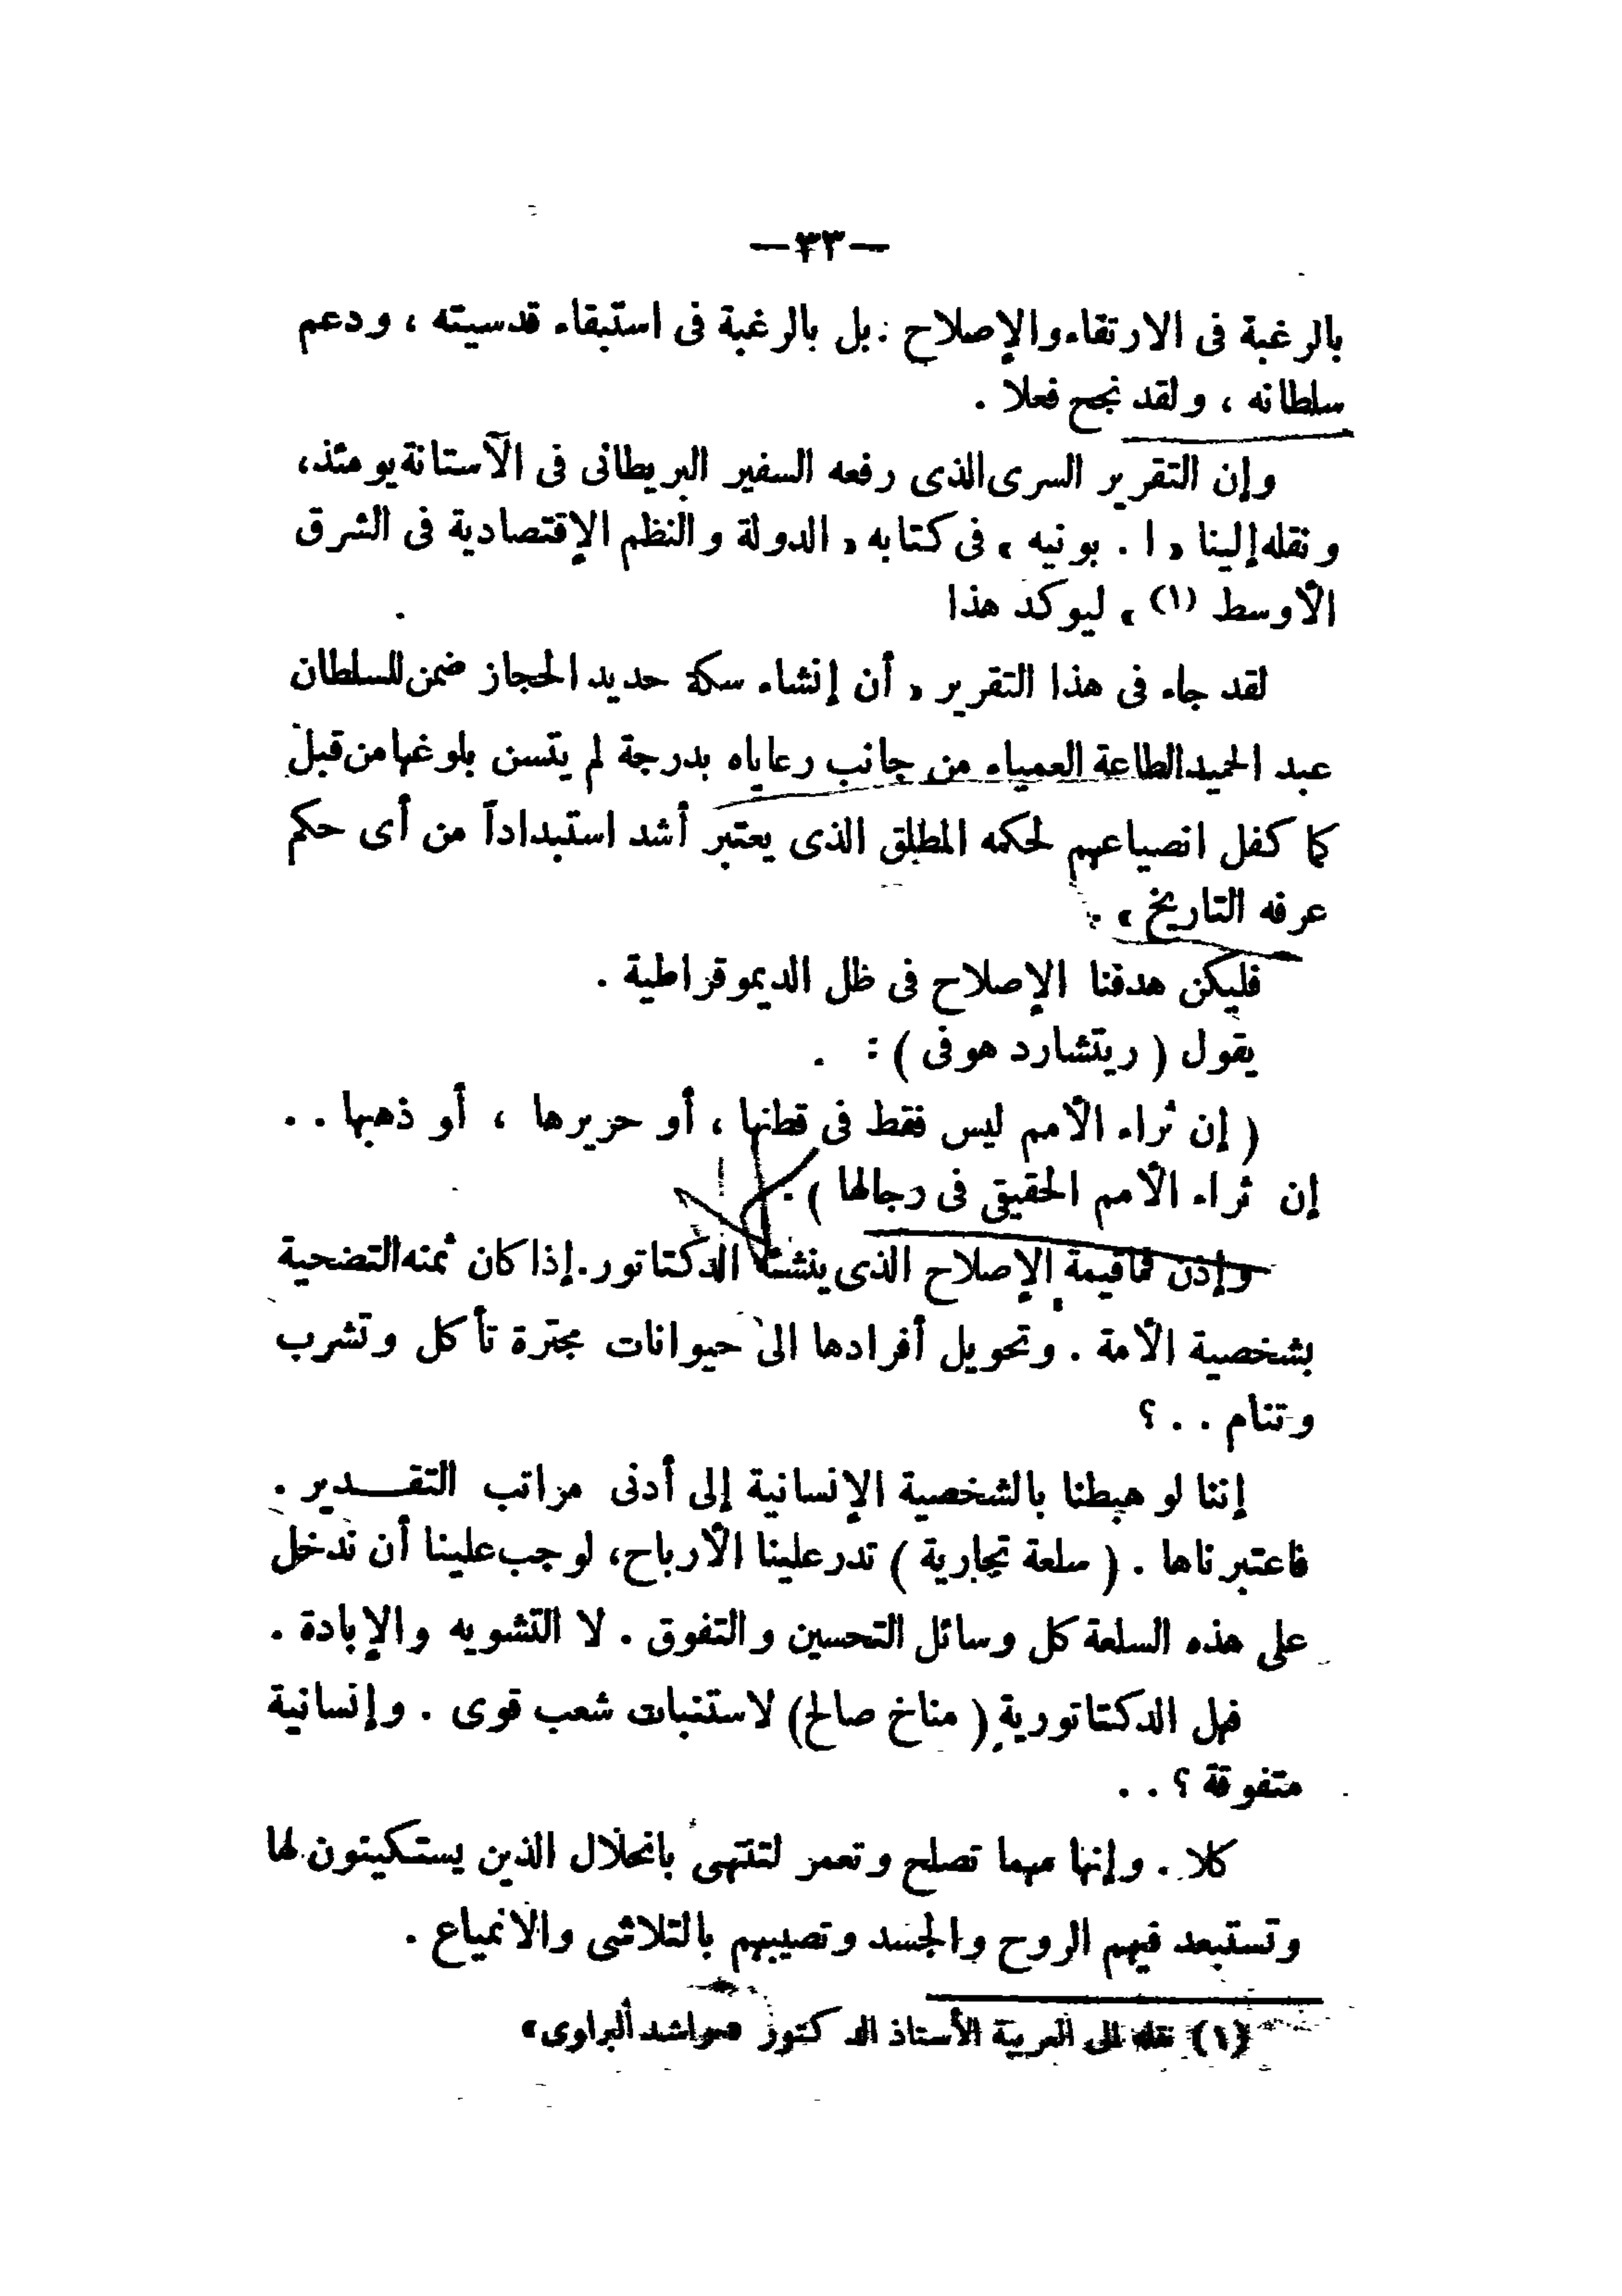 —٣٣—
بالرغبة فى الارتقاء والإصلاح : بل بالرغبة فى استبقاء قدسيته ، ودعم
سلطانه ، ولقد نجح فعلا .
وإن التقرير السرى الذى رفعه السفير البريطانى فى الآستانة يومئذ ،
ونقله إلينا « ا . بونيه » فى كتابه « الدولة والنظم الإقتصادية فى الشرق
الأوسط (١) » ليوكد هذا
لقد جاء فى هذا التقرير « أن إنشاء سكة حديد الحجاز ضمن للسلطان
عبد الحميد الطاعة العمياء من جانب رعاياه بدرجة لم يتسن بلوغها من قبل
كما كفل انصياعهم لحكمه المطلق الذى يعتبر أشد استبداداً من أى حكم
عرفه التاريخ » .
فليكن هدفنا الإصلاح فى ظل الديموقراطية .
يقول ( ريتشارد هوفى ) :
( إن ثراء الأمم ليس فقط فى قطنها ، أو حريرها ، أو ذهبها . .
إن ثراء الأمم الحقيقى فى رجالها ) .
وإذن فما قيمة الإصلاح الذى ينشئه الدكتاتور . إذا كان ثمنه التضحية
بشخصية الأمة . وتحويل أفرادها الى حيوانات مجترة تأكل وتشرب
وتنام . . ؟
إننا لو هبطنا بالشخصية الإنسانية إلى أدنى مراتب التقـــدير .
فاعتبرناها . ( سلعة تجارية ) تدر علينا الأرباح ، لوجب علينا أن ندخل
على هذه السلعة كل وسائل التحسين والتفوق . لا التشويه والإبادة .
فهل الدكتاتورية ( مناخ صالح ) لاستنبات شعب قوى . وإنسانية
متفوقة ؟ . .
كلا . وإنها مهما تصلح وتعمر لتنتهى بانحلال الذين يستكينون لها
وتستبعد فيهم الروح والجسد وتصيبهم بالتلاشى والانمياع .
(١) نقله الى العربية الأستاذ الدكتور «راشد البراوى»